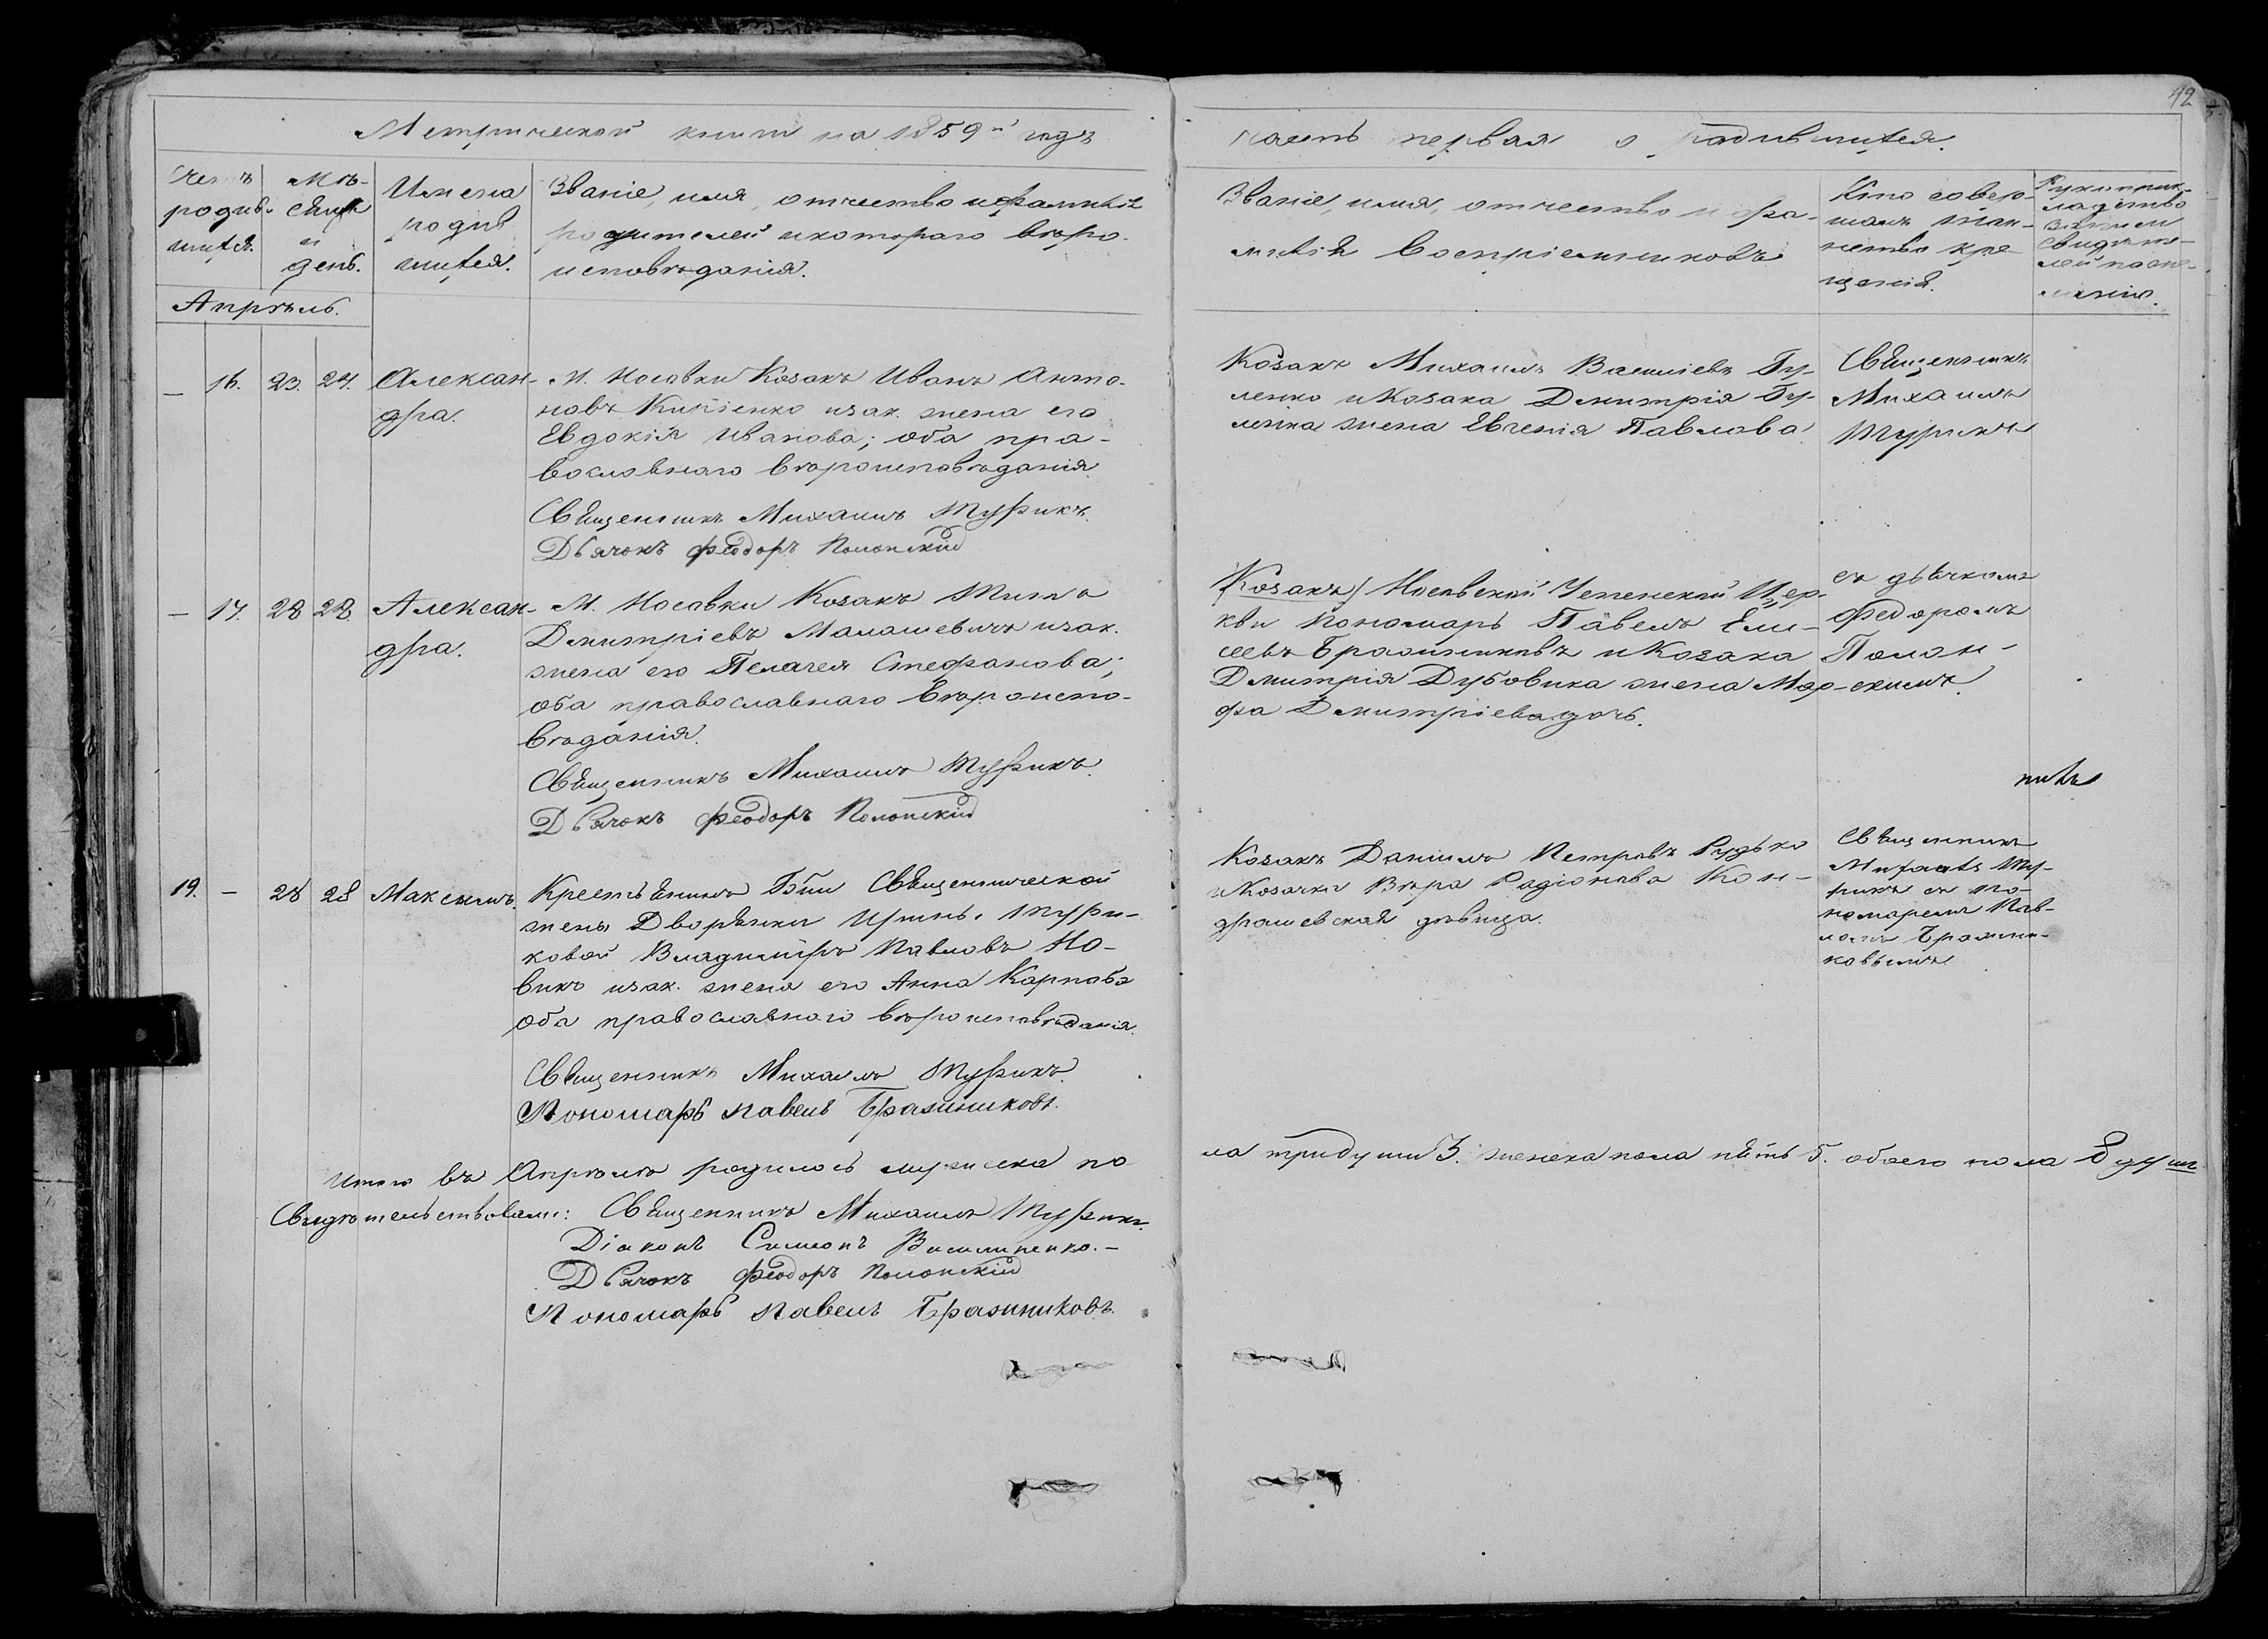 42
Метрической книги на 1859й годъ
часть первая о родившихся.
Счетъ родив- шихся.
Мѣ- сяцъ и день.
Имена родив шихся.
Званіе, имя, отчество и фамилія
родителей и котораго вѣро-
исповѣданія.
Званіе, имя, отчество и фа-
милія Воспріемниковъ
Кто совер-
шалъ таин-
ство кре-
щенія.
Рукоприк-
ладство
свидѣте-
лей по же-
ланію.
Апрѣль.
— 16. 23. 24. Алексан-
дра.
М. Носовки Козакъ Иванъ Анто-
новъ Кипіенко и зак. жена его
Евдокія Иванова; оба пра-
вославнаго вѣроисповѣданія.
Священникъ Михаилъ Турикъ.
Дьячокъ Феодоръ Полонскій
Козакъ Михаилъ Василіевъ Гу-
ленко и Козака Дмитрія Гу-
ленка жена Евгенія Павлова
Священникъ
Михаилъ
Турикъ
— 17. 28 28. Алексан-
дра.
М. Носовки Козакъ Титъ
Дмитріевъ Малашевичъ и зак.
жена его Пелагея Стефанова;
оба православнаго вѣроиспо-
вѣданія.
Священникъ Михаилъ Турикъ.
Дьячокъ Феодоръ Полонскій
Козакъ) Носовской Успенской Цер-
кви Пономарь Павелъ Ели-
сеевъ Бражниковъ и Козака
Дмитрія Дубовика жена Мар-
фа Дмитріева дочь.
съ дьячкомъ
Федоромъ
Полон-
скимъ.
19. — 28 28 Максимъ.
Крестьянинъ Бѣи Священнической
жены Дворянки Ирины Тури-
ковой Владиміръ Павловъ Но-
викъ и зак. жена его Анна Карпова
оба православнаго вѣроисповѣданія.
Священникъ Михаилъ Турикъ.
Пономарь Павелъ Бражниковъ.
Козакъ Даніилъ Петровъ Рудько
и Козачка Вѣра Радіонова Кон-
драшевская дѣвица.
Священникъ
Михаилъ Ту-
рикъ съ по-
номаремъ Пав-
ломъ Бражни-
ковымъ
Итого въ Апрѣлѣ родилось мужеска по
ла три души 3. женска пола пять 5. обоего пола 8 душъ
Свидѣтельствовали: Священникъ Михаилъ Турикъ.
Діаконъ Симеонъ Василенко.—
Дьячокъ Феодоръ Полонскій
Пономарь Павелъ Бражниковъ.